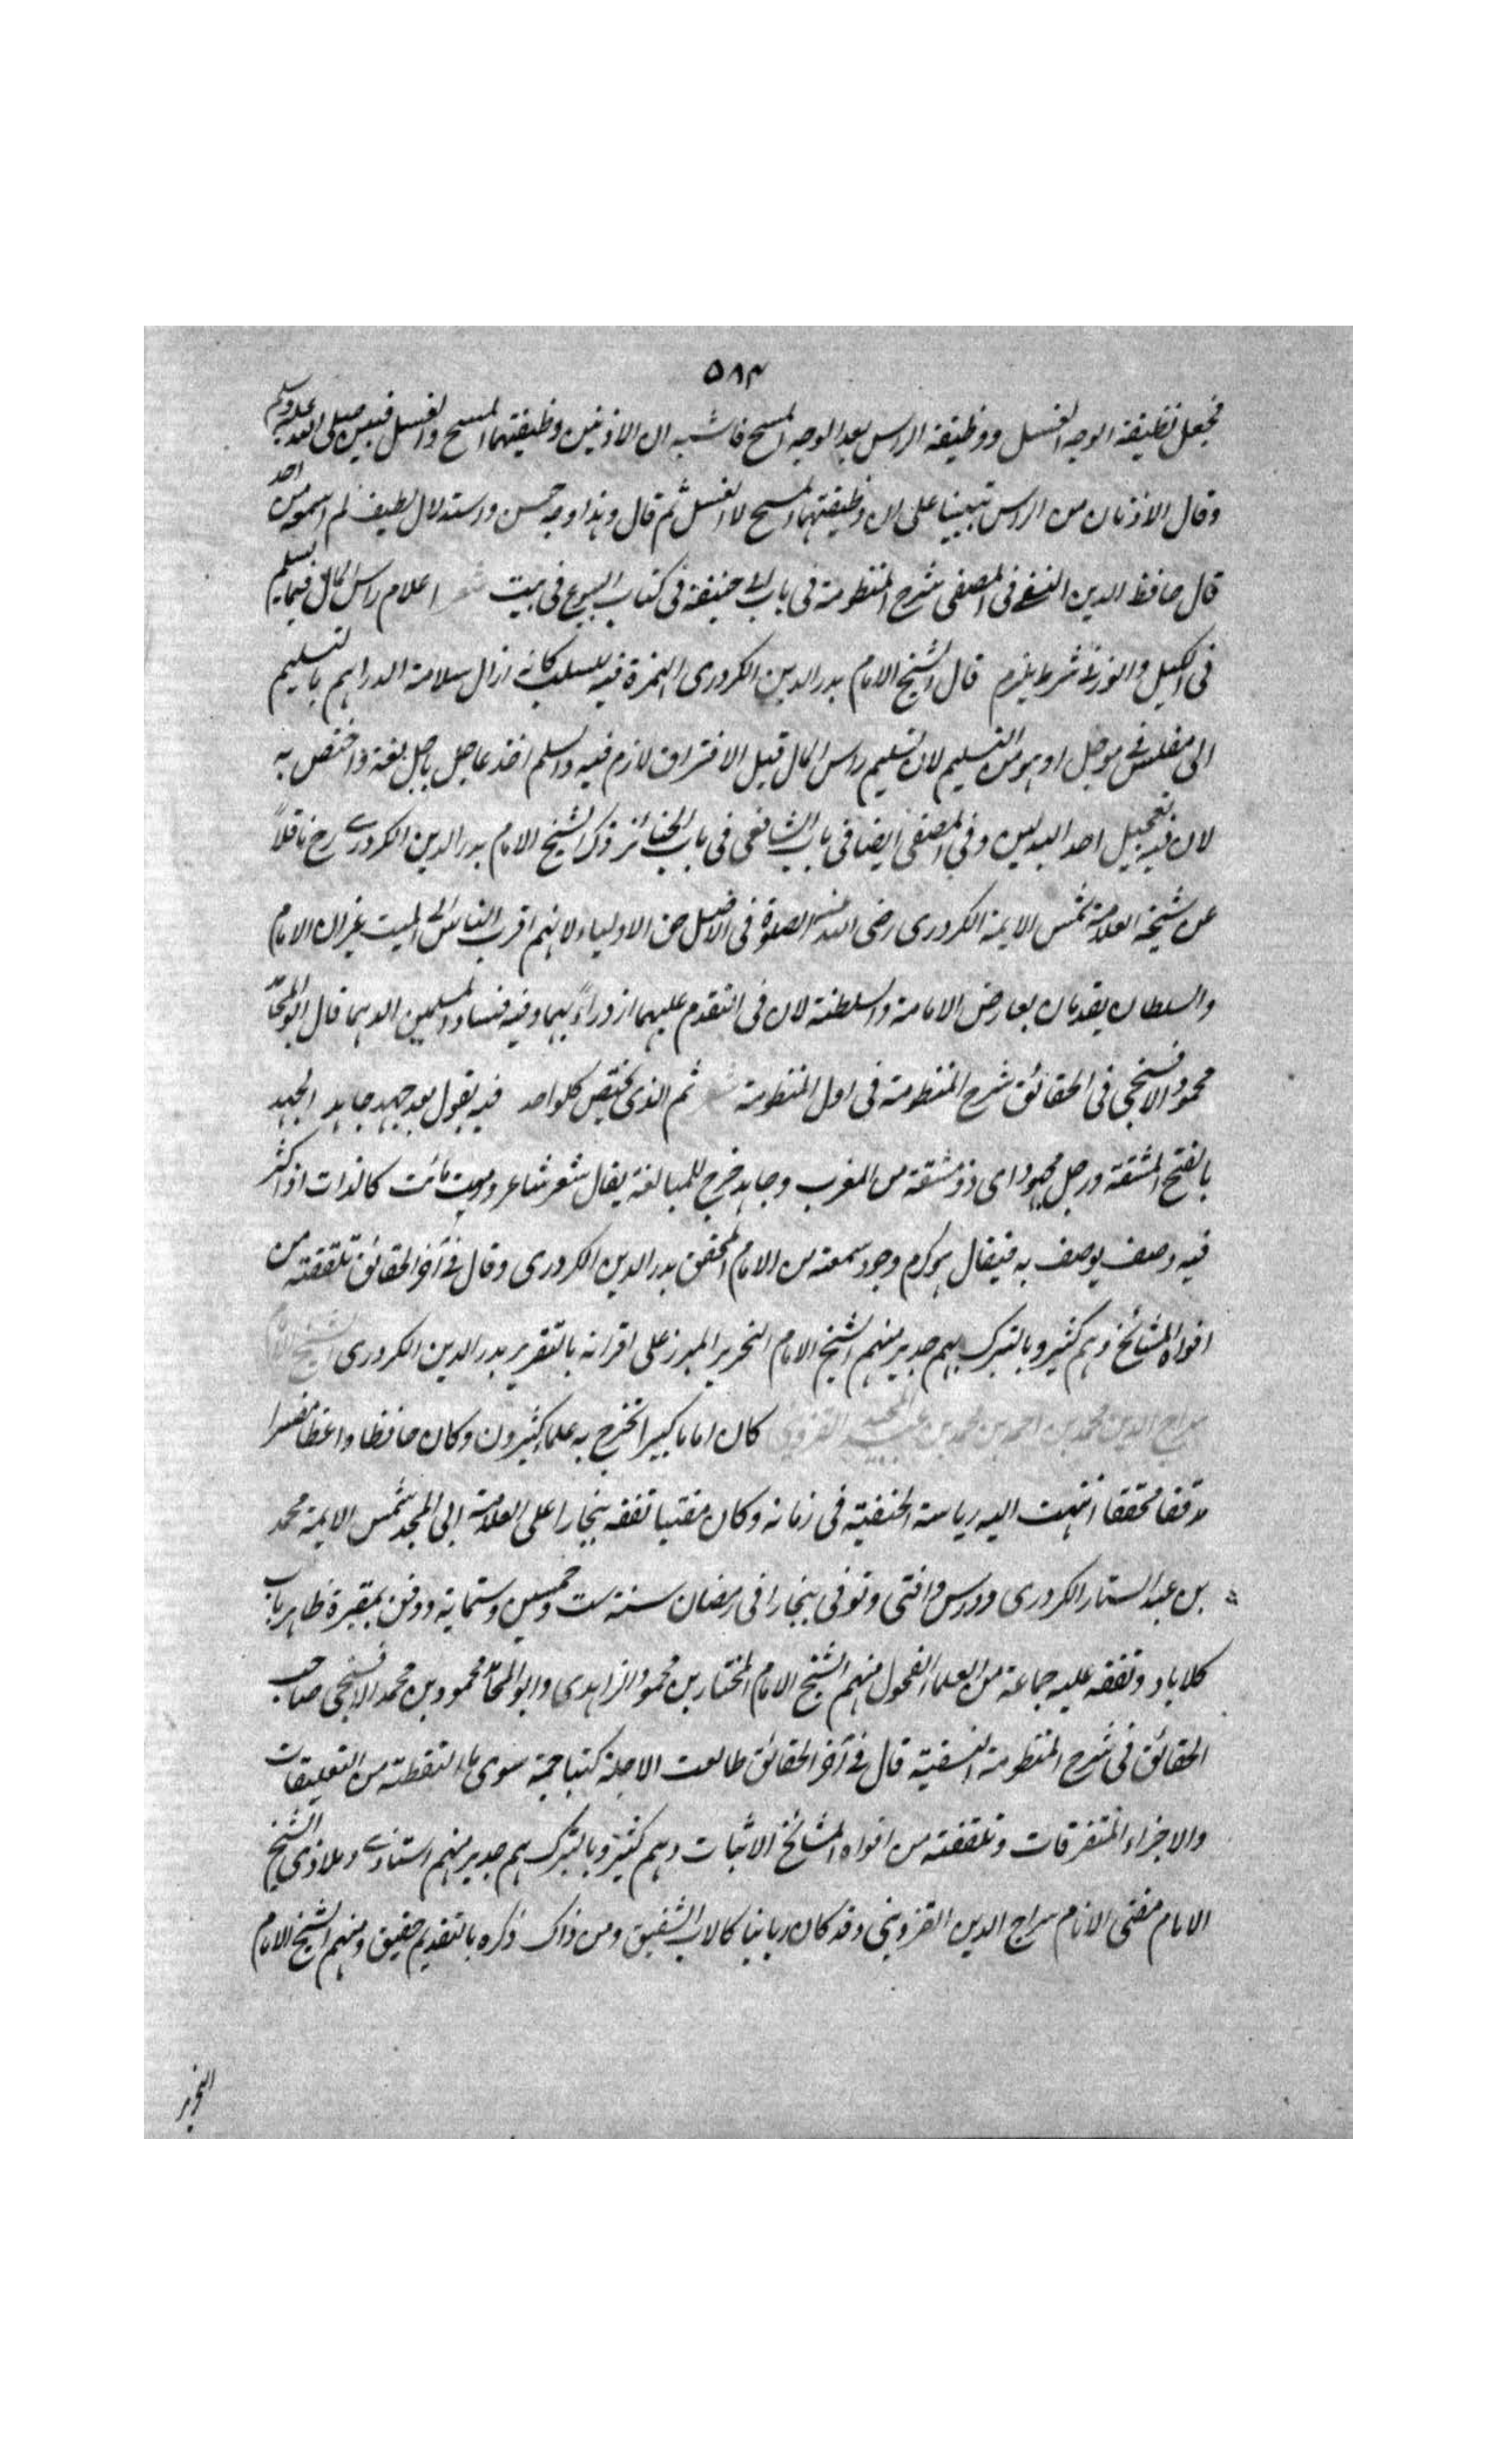 ٥٨٤
فجعل نظيفة الوجه الغسل ووظيفة الراس بعد الوجه المسح فاشبه ان الاذنين وظيفتهما المسح والغسل فبين صلى الله عليه وسلم
وقال الاذنان من الراس تبيينا على ان وظيفتهما المسح لا الغسل ثم قال وهذا وجه حسن واستدلال لطيف لم اسمعه من احد
قال حافظ الدين النسفي فى المصفى شرح المنظومة فى باب ابى حنيفة فى كتاب البيوع فى بيت شعر اعلام راس المال فيما يسلم
فى الكيل والوزن شرط يلزم قال الشيخ الامام بدر الدين الكرورى الهمزة فيه للسلب كانه ازال سلامة الدراهم بالتسليم
الى مفلس فى موجل او هو من التسليم لان تسليم راس المال قبل الافتراق لازم فيه والسلم اخذ عاجل باجل لغة واختص به
لان فيه تعجيل احد البدلين وفى المصفى ايضا فى باب الشافعى فى باب الجنائز ذكر الشيخ الامام بدر الدين الكرورى رح ناقلاً
عن شيخه العلامة شمس الايمة الكرورى رضى الله عنه الصلوة فى الاصل حق الاولياء لانهم اقرب الناس الى الميت غير ان الامام
والسلطان يقدمان بعارض الامامة والسلطنة لان فى التقدم عليهما ازدراءً بهما وفيه فساد المسلمين قال ابو المحامد
محمود الافسنجى فى الحقائق شرح المنظومة فى اول المنظومة شعر ثم الذى يختص كلواحد فيه يقول بعد جهد جاهد الجهد
بالفتح المشقة ورجل مجهود اى ذو مشقة من المغرب وجاهد خرج للمبالغة يقال شعر شاعر وموت مائت كالذات اذا كثر
فيه وصف يوصف به فيقال هو كرم وجود سمعته من الامام المحقق بدر الدين الكرورى وقال فى آخر الحقائق تلقفته من
افواه المشائخ وهم كثير وبالتبرك بهم جدير منهم الشيخ الامام النحرير المبرز على اقرانه بالتقرير بدر الدين الكرورى الشيخ الامام
سراج الدين محمد بن احمد بن محمد بن عبد المجيد القزوينى كان اماما كبيرا تخرج به علماء كثيرون وكان حافظا واعظا مفسرا
مدققا محققا انتهت اليه رياسة الحنفية فى زمانه وكان مفتيا تفقه ببخارا على العلامة ابى المجد شمس الايمة محمد
بن عبد الستار الكرورى ودرس وافتى وتوفى ببخارا فى رمضان سنة ست وخمسين وستمائة ودفن بمقبرة ظاهر باب
كلاباد وتفقه عليه جماعة من العلما الفحول منهم الشيخ الامام المختار بن محمود الزاهدى وابو المحامد محمود بن محمد الافسنجى صاحب
الحقائق فى شرح المنظومة النسفية قال فى آخر الحقائق طالعت الاجلة كتبا جمة سوى ما التقطته من التعليقات
والاجزاء المتفرقات وتلقفته من افواه المشائخ الاثبات وهم كثير وبالتبرك بهم جدير منهم استاذى وملاذى الشيخ
الامام مفتى الانام سراج الدين القزوينى وقد كان ربانيا كالاب الشفيق ومن ذاك ذكره بالتقديم حقيق ومنهم الشيخ الامام
النحرير